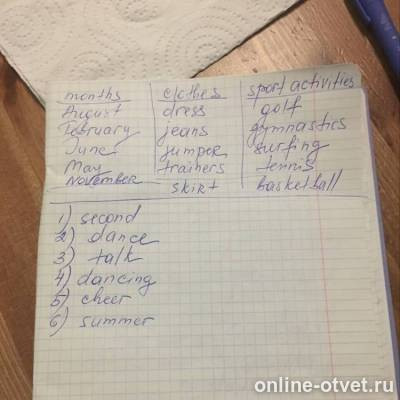 months clothes sport activities
August dress golf
February jeans gymnastics
June jumper surfing
May trainers tennis
November skirt basketball
1) second
2) dance
3) talk
4) dancing
5) cheer
6) summer
online-otvet.ru